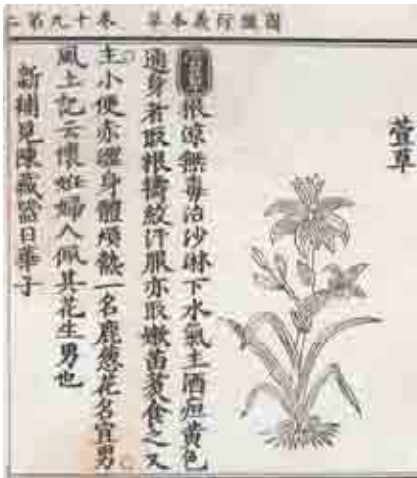 圖經衍義本草 卷十九第二
萱草
萱草根涼無毒治沙淋下水氣主酒疸黃色
通身者取根擣絞汁服亦取嫩苗煑食之又
主小便赤澁身體煩熱一名鹿葱花名宜男
風土記云懷姙婦人佩其花生男也
新補見陳藏器日華子